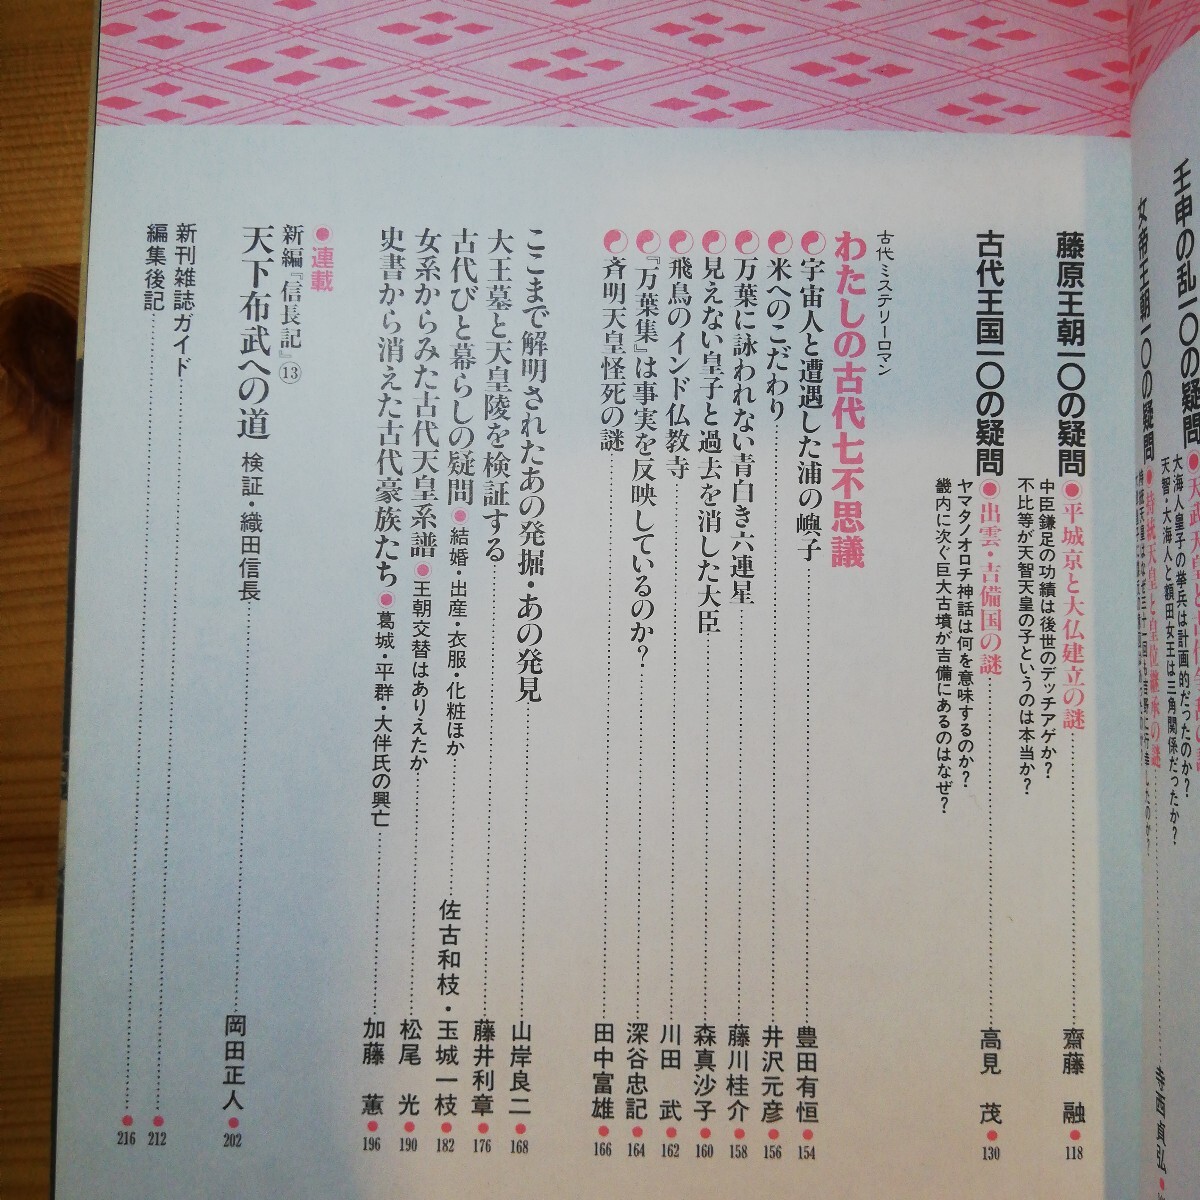 壬申の乱一〇の疑問
大海人皇子の挙兵は計画的だったのか？
天智・大海人と額田女王は三角関係だったか？
女帝王朝一〇の疑問
●持統天皇と皇位継承の謎
寺西貞弘
藤原王朝一〇の疑問
●平城京と大仏建立の謎
齋藤 融●118
中臣鎌足の功績は後世のデッチアゲか？
不比等が天智天皇の子というのは本当か？
古代王国一〇の疑問
●出雲・吉備国の謎
高見 茂●130
ヤマタノオロチ神話は何を意味するのか？
畿内に次ぐ巨大古墳が吉備にあるのはなぜ？
古代ミステリーロマン
わたしの古代七不思議
宇宙人と遭遇した浦の嶼子 豊田有恒●154
米へのこだわり 井沢元彦●156
万葉に詠われない青白き六連星 藤川桂介●158
見えない皇子と過去を消した大臣 森真沙子●160
飛鳥のインド仏教寺 川田 武●162
『万葉集』は事実を反映しているのか？ 深谷忠記●164
斉明天皇怪死の謎 田中富雄●166
ここまで解明されたあの発掘・あの発見 山岸良二●168
大王墓と天皇陵を検証する 藤井利章●176
古代びと暮らしの疑問●結婚・出産・衣服・化粧ほか 佐古和枝・玉城一枝●182
女系からみた古代天皇系譜●王朝交替はありえたか 松尾 光●190
史書から消えた古代豪族たち●葛城・平群・大伴氏の興亡 加藤 薫●196
●連載
新編『信長記』⑬
天下布武への道 検証・織田信長 岡田正人●202
新刊雑誌ガイド●212
編集後記●216